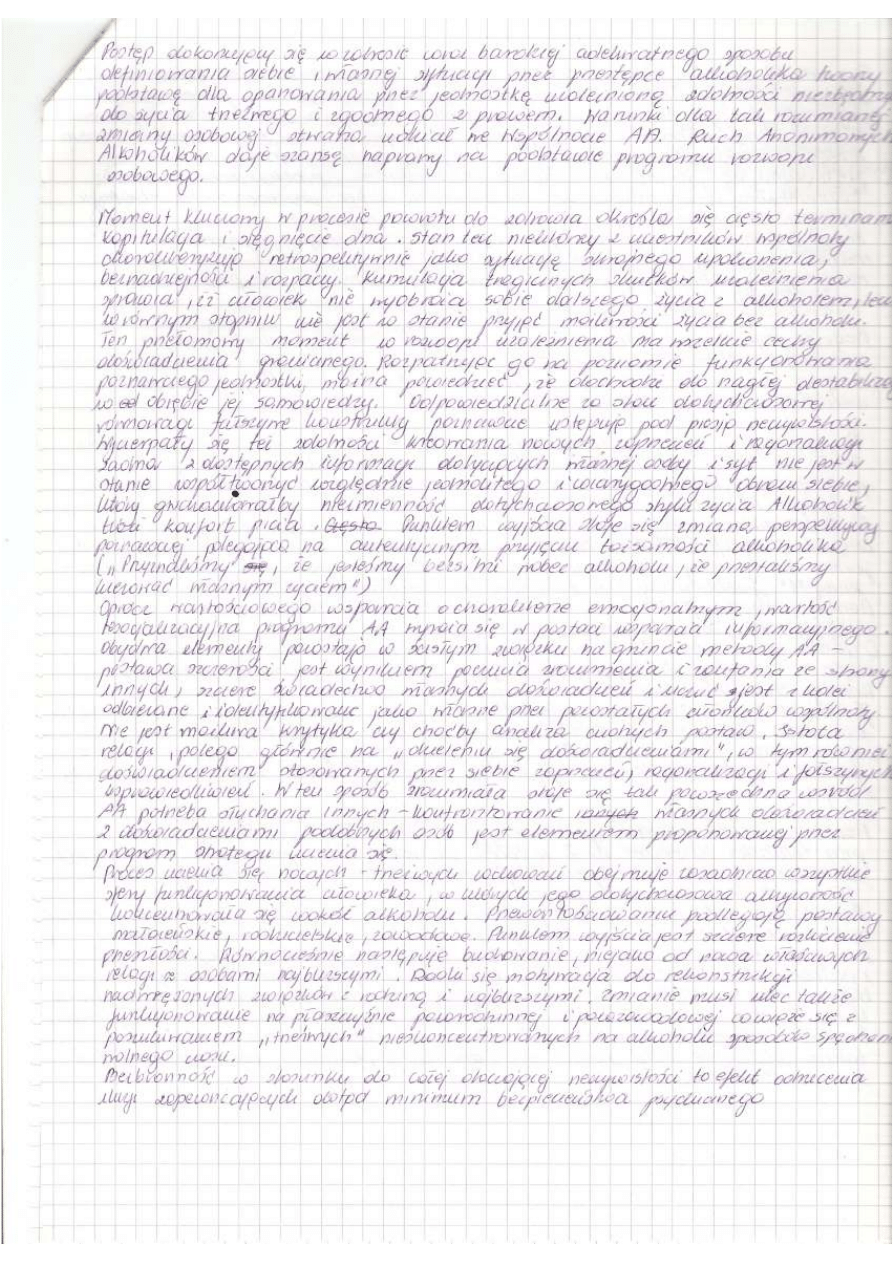 Postęp dokonujący się w zakresie coraz bardziej adekwatnego sposobu
definiowania siebie i własnej sytuacji przez przestępcę alkoholika tworzy
podstawę dla opanowania przez jednostkę uzależnioną zdolności niezbędnej
do życia trzeźwego i zgodnego z prawem. Warunki dla tak rozumianej
zmiany osobowej stwarza udział we Wspólnocie AA. Ruch Anonimowych
Alkoholików daje szansę naprawy na podstawie programu rozwoju
osobowego.
Moment kluczowy w procesie powrotu do zdrowia określa się często terminami
kapitulacja i sięgnięcie dna. Stan ten niektórzy z uczestników wspólnoty
charakteryzują retrospektywnie jako sytuację skrajnego upokorzenia,
beznadziejności i rozpaczy. Kumulacja tragicznych skutków uzależnienia
sprawia, iż człowiek nie wyobraża sobie dalszego życia z alkoholem, lecz
w równym stopniu nie jest w stanie przyjąć możliwości życia bez alkoholu.
Ten przełomowy moment w rozwoju uzależnienia ma wszelkie cechy
doświadczenia granicznego. Rozpatrując go na poziomie funkcjonowania
poznawczego jednostki, można powiedzieć, że dochodzi do nagłej destabilizacji
w obrębie jej samowiedzy. Odpowiedzialne za stan dotychczasowej
równowagi fałszywe konstrukty poznawcze ustępują pod presją rzeczywistości.
Wyczerpały się też zdolności kreowania nowych zaprzeczeń i racjonalizacji
Żadna z dostępnych informacji dotyczących własnej osoby i syt nie jest w
stanie współtworzyć względnie jednolitego i wiarygodnego obrazu siebie,
który gwarantowałby niezmienność dotychczasowego stylu życia Alkoholik
traci komfort picia. Często Punktem wyjścia staje się zmiana perspektywy
poznawczej polegająca na autentycznym przyjęciu tożsamości alkoholika
("Przyznaliśmy się, że jesteśmy bezsilni wobec alkoholu, że przestaliśmy
kierować własnym życiem")
Oprócz wartościowego wsparcia o charakterze emocjonalnym, wartość
resocjalizacyjna programu AA wyraża się w postaci wsparcia informacyjnego -
obydwa elementy pozostają w ścisłym związku na gruncie metody AA -
postawa szczerości jest wynikiem poczucia zrozumienia i zaufania ze strony
innych, szczere świadectwo własnych doświadczeń i uczuć jest z kolei
odbierane i identyfikowane jako własne przez pozostałych członków wspólnoty
Nie jest możliwa krytyka czy choćby analiza cudzych postaw. Istota
relacji, polega głównie na "dzieleniu się doświadczeniami", w tym również
doświadczeniem stosowanych przez siebie zaprzeczeń, racjonalizacji i fałszywych
usprawiedliwień. W ten sposób zrozumiała staje się tak powszechna wśród
AA potrzeba słuchania innych - konfrontowanie własnych doświadczeń
z doświadczeniami podobnych osób jest elementem proponowanej przez
program strategii uczenia się.
Proces uczenia się nowych - trzeźwych zachowań obejmuje zasadniczo wszystkie
sfery funkcjonowania człowieka, w których jego dotychczasowa aktywność
koncentrowała się wokół alkoholu. Przewartościowaniu podlegają postawy
małżeńskie, rodzicielskie, zawodowe. Punktem wyjścia jest szczere rozliczenie
przeszłości. Równocześnie następuje budowanie, niejako od nowa właściwych
relacji z osobami najbliższymi. Rodzi się motywacja do rekonstrukcji
nadwyrężonych związków z rodziną i najbliższymi. Zmianie musi ulec także
funkcjonowanie na płaszczyźnie pozarodzinnej i pozazawodowej co wiąże się z
poszukiwaniem "trzeźwych" nieskoncentrowanych na alkoholu sposobów spędzania
wolnego czasu.
Bezbronność w stosunku do całej otaczającej rzeczywistości to efekt odrzucenia
iluzji zapewniających dotąd minimum bezpieczeństwa psychicznego